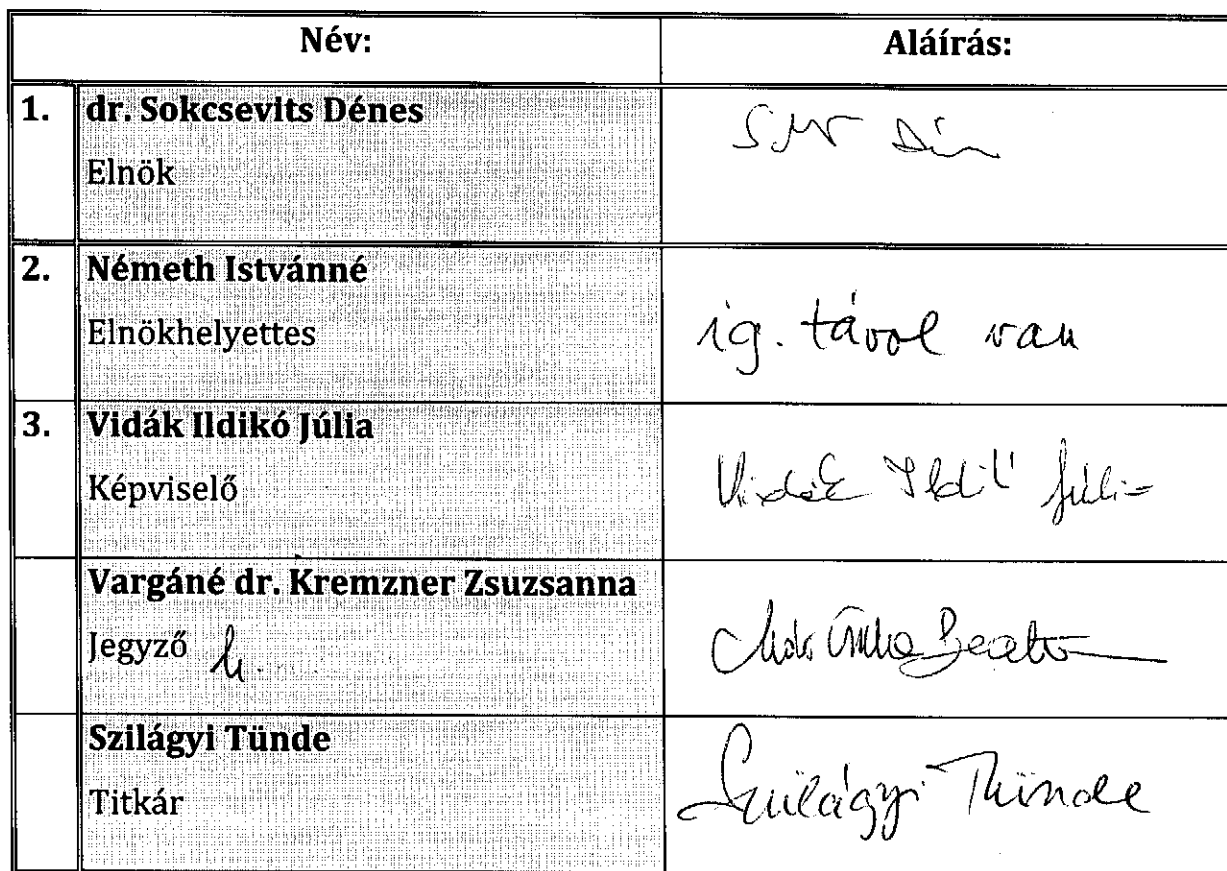 Név: Aláírás:
1. dr. Sokcsevits Dénes
Elnök
2. Németh Istvánné
Elnökhelyettes ig. távol van
3. Vidák Ildikó Júlia
Képviselő Vidák Júlia
Vargáné dr. Kremzner Zsuzsanna
Jegyző h.
Szilágyi Tünde
Titkár Szilágyi Tünde